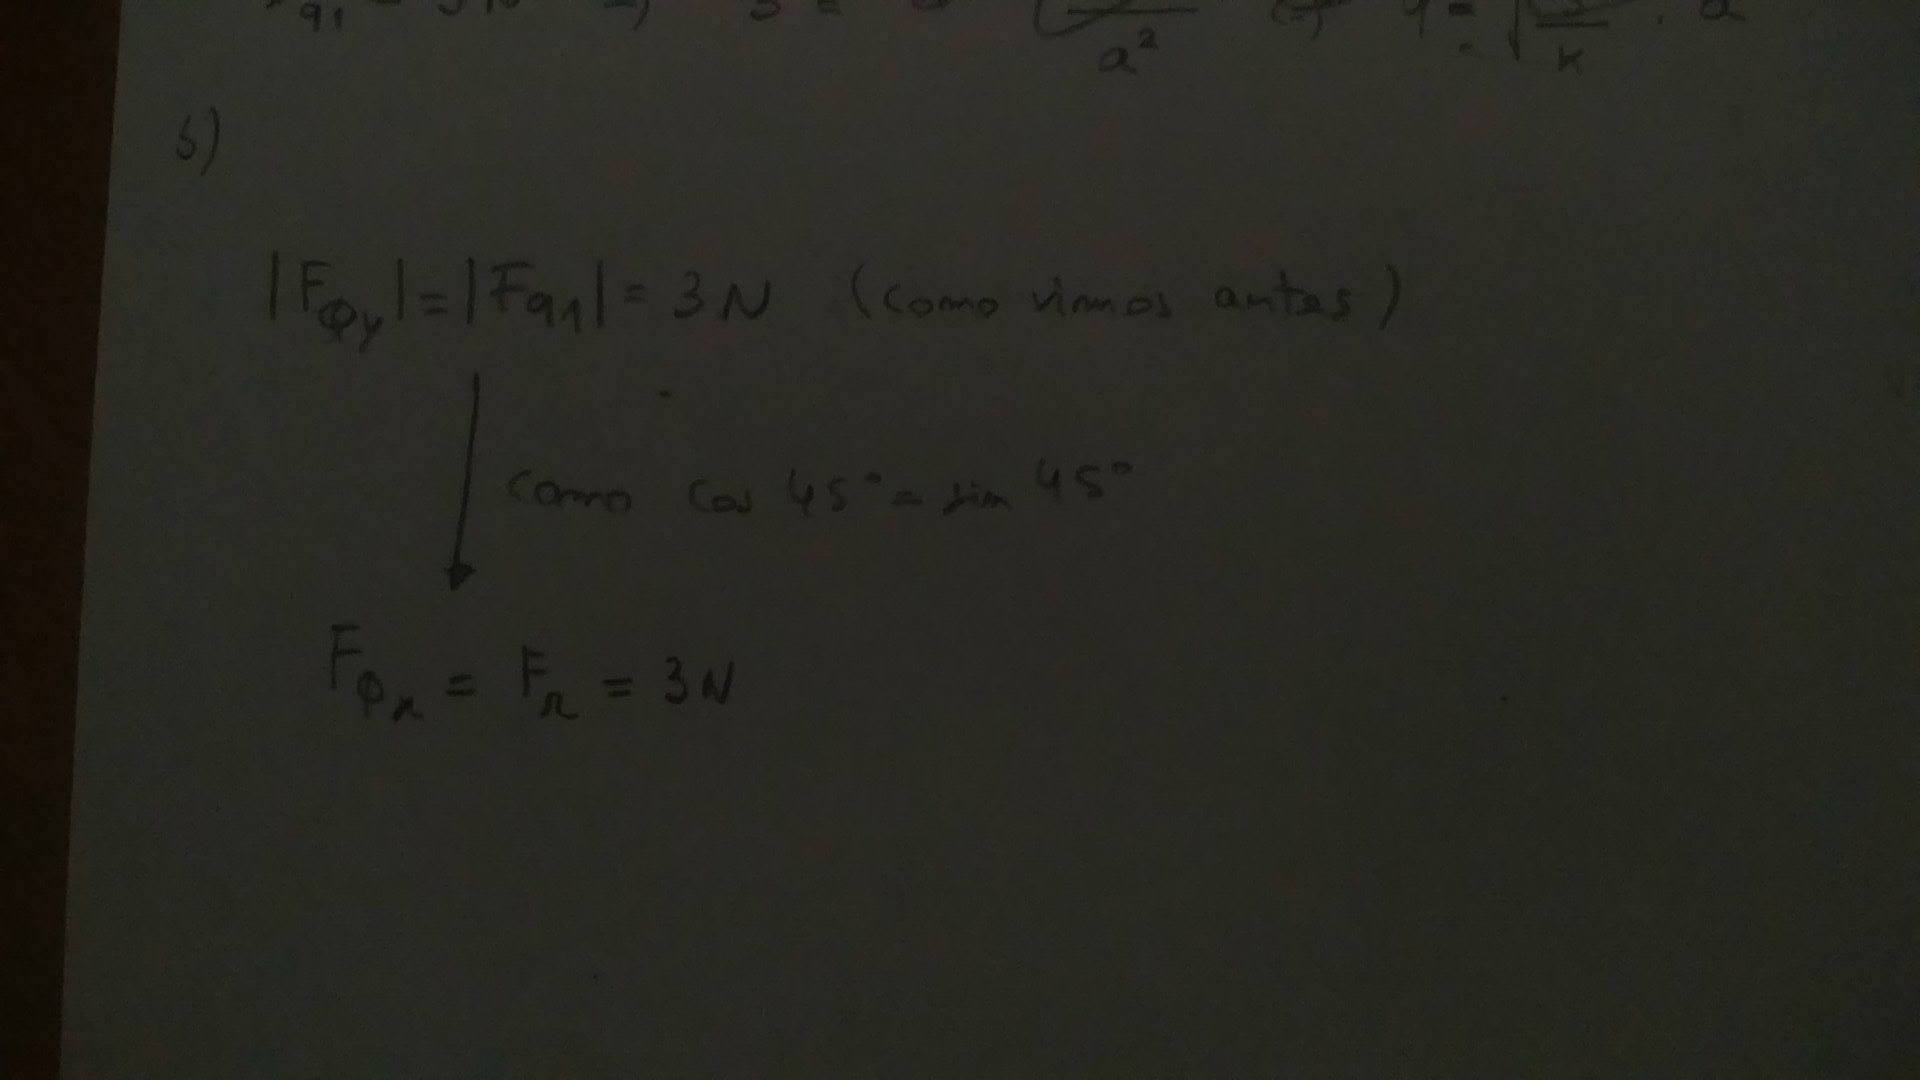 a² k
5)
|FQy| = |Fq1| = 3N (como vimos antes)
como cos 45° = sin 45°
FQx = Fr = 3N